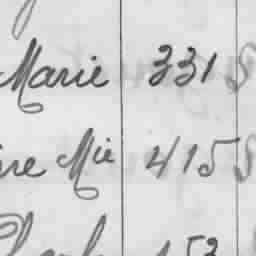 Marie 331 S
re Mie 415 S
153